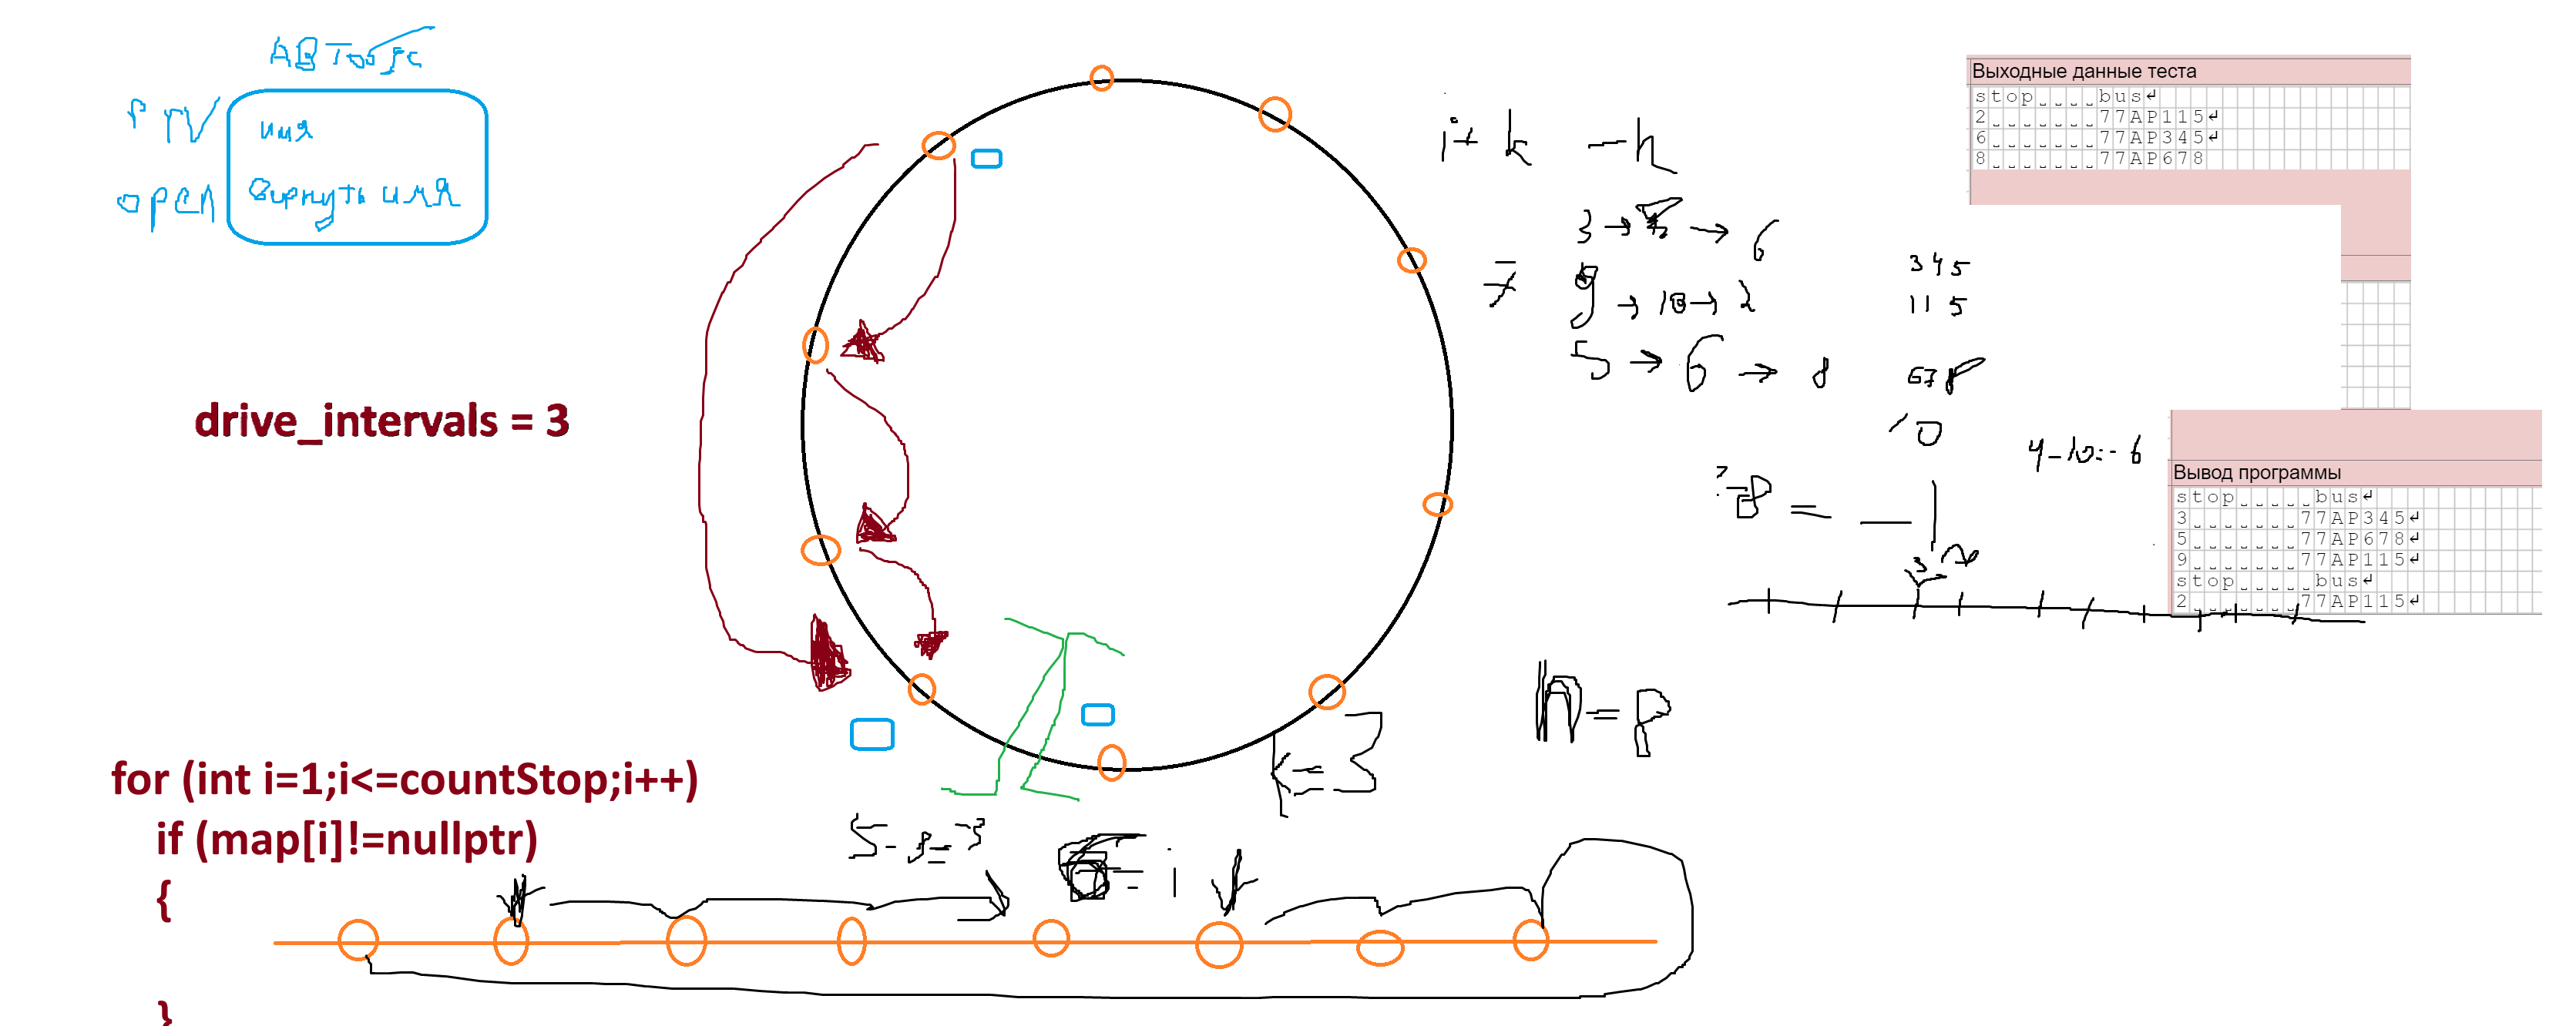 АВТобус
PrIV
имя
open
Вернуть имя
drive_intervals = 3
for (int i=1;i<=countStop;i++)
if (map[i]!=nullptr)
{
}
i+ k - n
3 → → 6
7
9 → 10 → 2
5 → 6 → 8
345
115
678
10
4-10=-6
7-8 = -1
n = p
k = 3
5-8=-3
6 = i
Выходные данные теста
stop____bus↵
2_______77AP115↵
6_______77AP345↵
8_______77AP678
Вывод программы
stop_____bus↵
3_______77AP345↵
5_______77AP678↵
9_______77AP115↵
stop_____bus↵
2_______77AP115↵